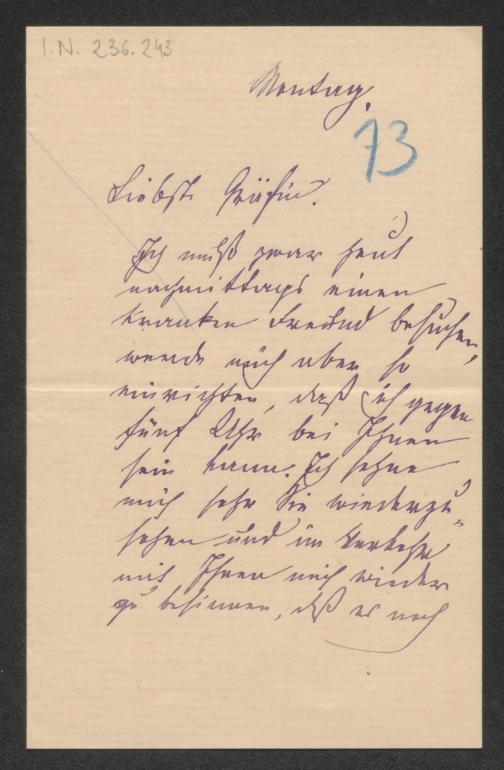 I.N. 236.243
Montag.
73
Liebste Gräfin!
Ich muß zwar heut
nachmittags einen
kranken Freund besuchen,
werde mich aber so
einrichten, daß ich gegen
fünf Uhr bei Ihnen
sein kann. Ich sehne
mich sehr Sie wiederzu-
sehen und im Verkehr
mit Ihnen mich wieder
zu besinnen, daß es noch